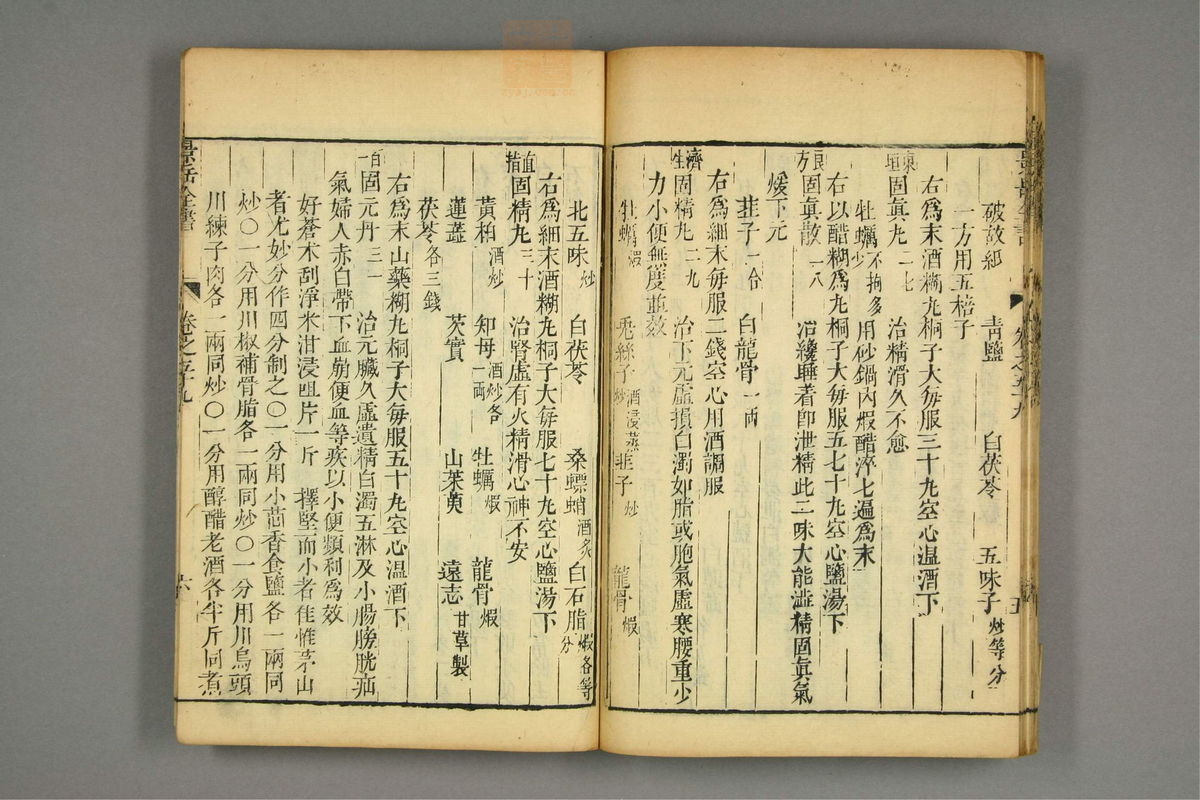 破故紙 青鹽 白茯苓 五味子炒等分
一方用五棓子
右爲末酒糊丸桐子大每服三十丸空心溫酒下
東垣固眞丸二七 治精滑久不愈
牡蠣不拘多少 用砂鍋內煆醋淬七遍爲末
右以醋糊爲丸桐子大每服五七十丸空心鹽湯下
良方固眞散一八 治纔睡著卽泄精此二味大能澁精固眞氣
煖下元
韭子一合 白龍骨一兩
右爲細末每服二錢空心用酒調服
濟生固精丸二九 治下元虛損白濁如脂或胞氣虛寒腰重少
力小便無度並效
牡蠣煆 兎絲子酒浸蒸炒 韭子炒 龍骨煆
北五味炒 白茯苓 桑螵蛸酒炙 白石脂煆各等分
右爲細末酒糊丸桐子大每服七十丸空心鹽湯下
直指固精丸三十 治腎虛有火精滑心神不安
黃柏酒炒 知母酒炒各一兩 牡蠣煆 龍骨煆
蓮蕋 芡實 山茱萸 遠志甘草製
茯苓各三錢
右爲末山藥糊丸桐子大每服五十丸空心溫酒下
百一固元丹三一 治元臟久虛遺精白濁五淋及小腸膀胱疝
氣婦人赤白帶下血崩便血等疾以小便頻利爲效
好蒼术刮淨米泔浸咀片一斤 擇堅而小者佳惟茅山
者尤妙分作四分制之〇一分用小茴香食鹽各一兩同
炒〇一分用川椒補骨脂各一兩同炒〇一分用川烏頭
川練子肉各一兩同炒〇一分用醇醋老酒各半斤同煮
景岳全書 卷之五十九 六
卷之五十九 五